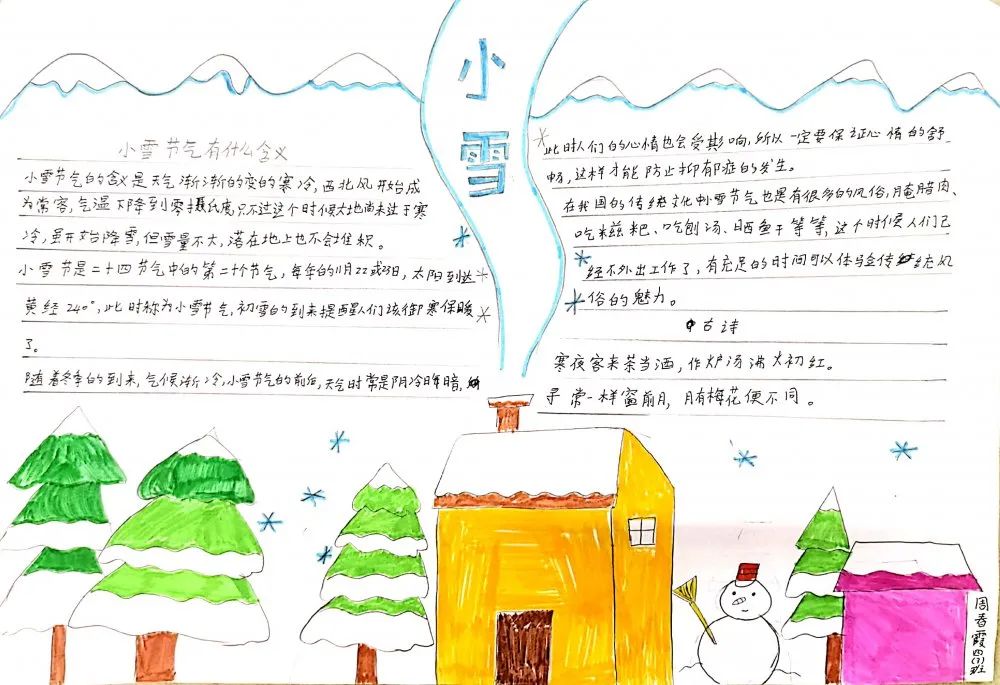 小雪
小雪节气有什么含义
小雪节气的含义是天气渐渐的变的寒冷,西北风开始成
为常客,气温下降到零摄氏度,只不过这个时候大地尚未过于寒
冷,虽开始降雪,但雪量不大,落在地上也不会堆积。
小雪节是二十四节气中的第二十个节气,每年的11月22或23日,太阳到达
黄经240°,此时称为小雪节气,初雪的到来提醒人们该御寒保暖
了。
随着冬季的到来,气候渐冷,小雪节气的前后,天气时常是阴冷晦暗,
此时人们的心情也会受其影响,所以一定要保证心情的舒
畅,这样才能防止抑郁症的发生。
在我国的传统文化中小雪节气也是有很多的风俗,腌腊肉、
吃糍粑、吃刨汤、晒鱼干等等,这个时候人们已
经不外出工作了,有充足的时间可以体验传统风
俗的魅力。
古诗
寒夜客来茶当酒,作炉汤沸火初红。
寻常一样窗前月,月有梅花便不同。
周春霞四(1)班